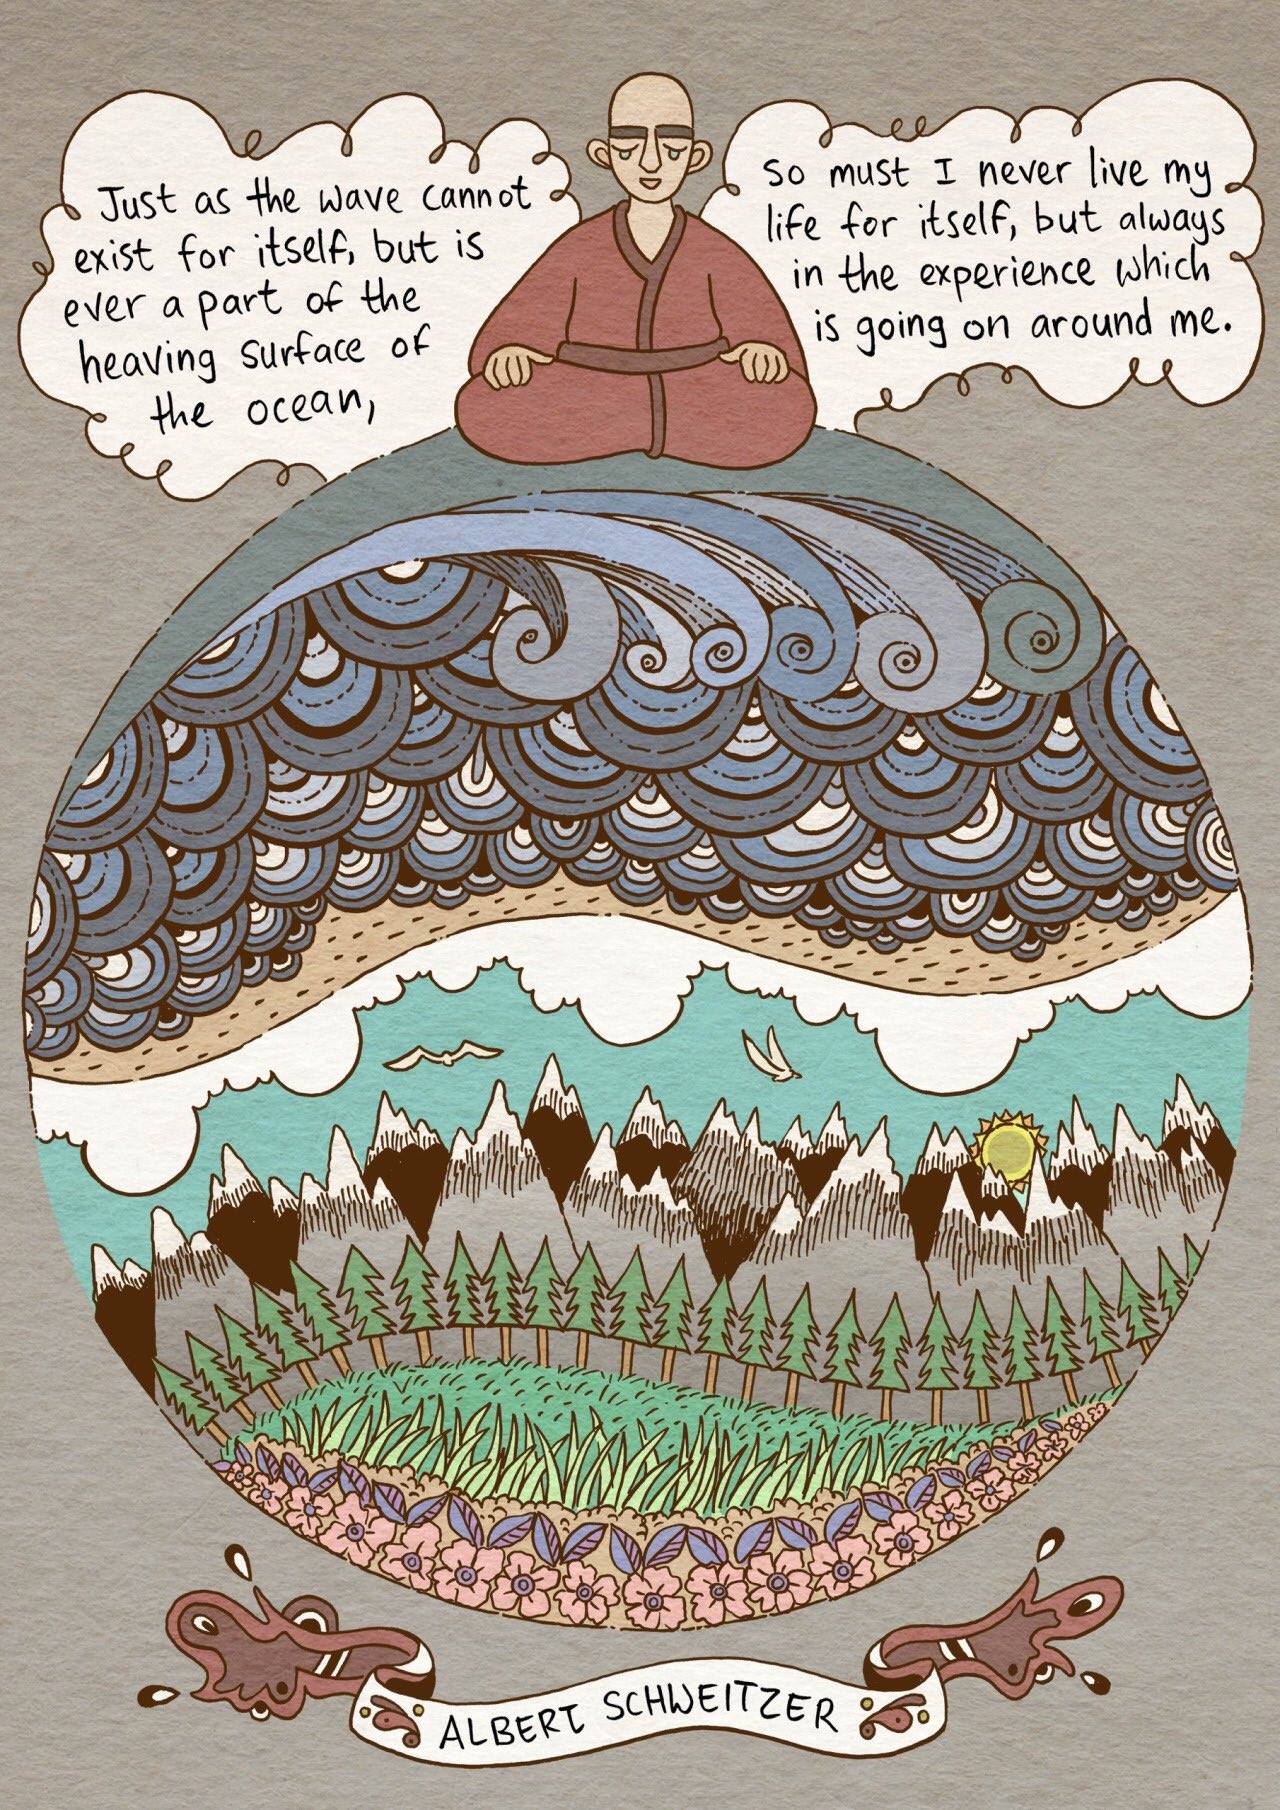 Just as the wave cannot
exist for itself, but is
ever a part of the
heaving surface of
the ocean,
So must I never live my
life for itself, but always
in the experience which
is going on around me.
ALBERT SCHWEITZER